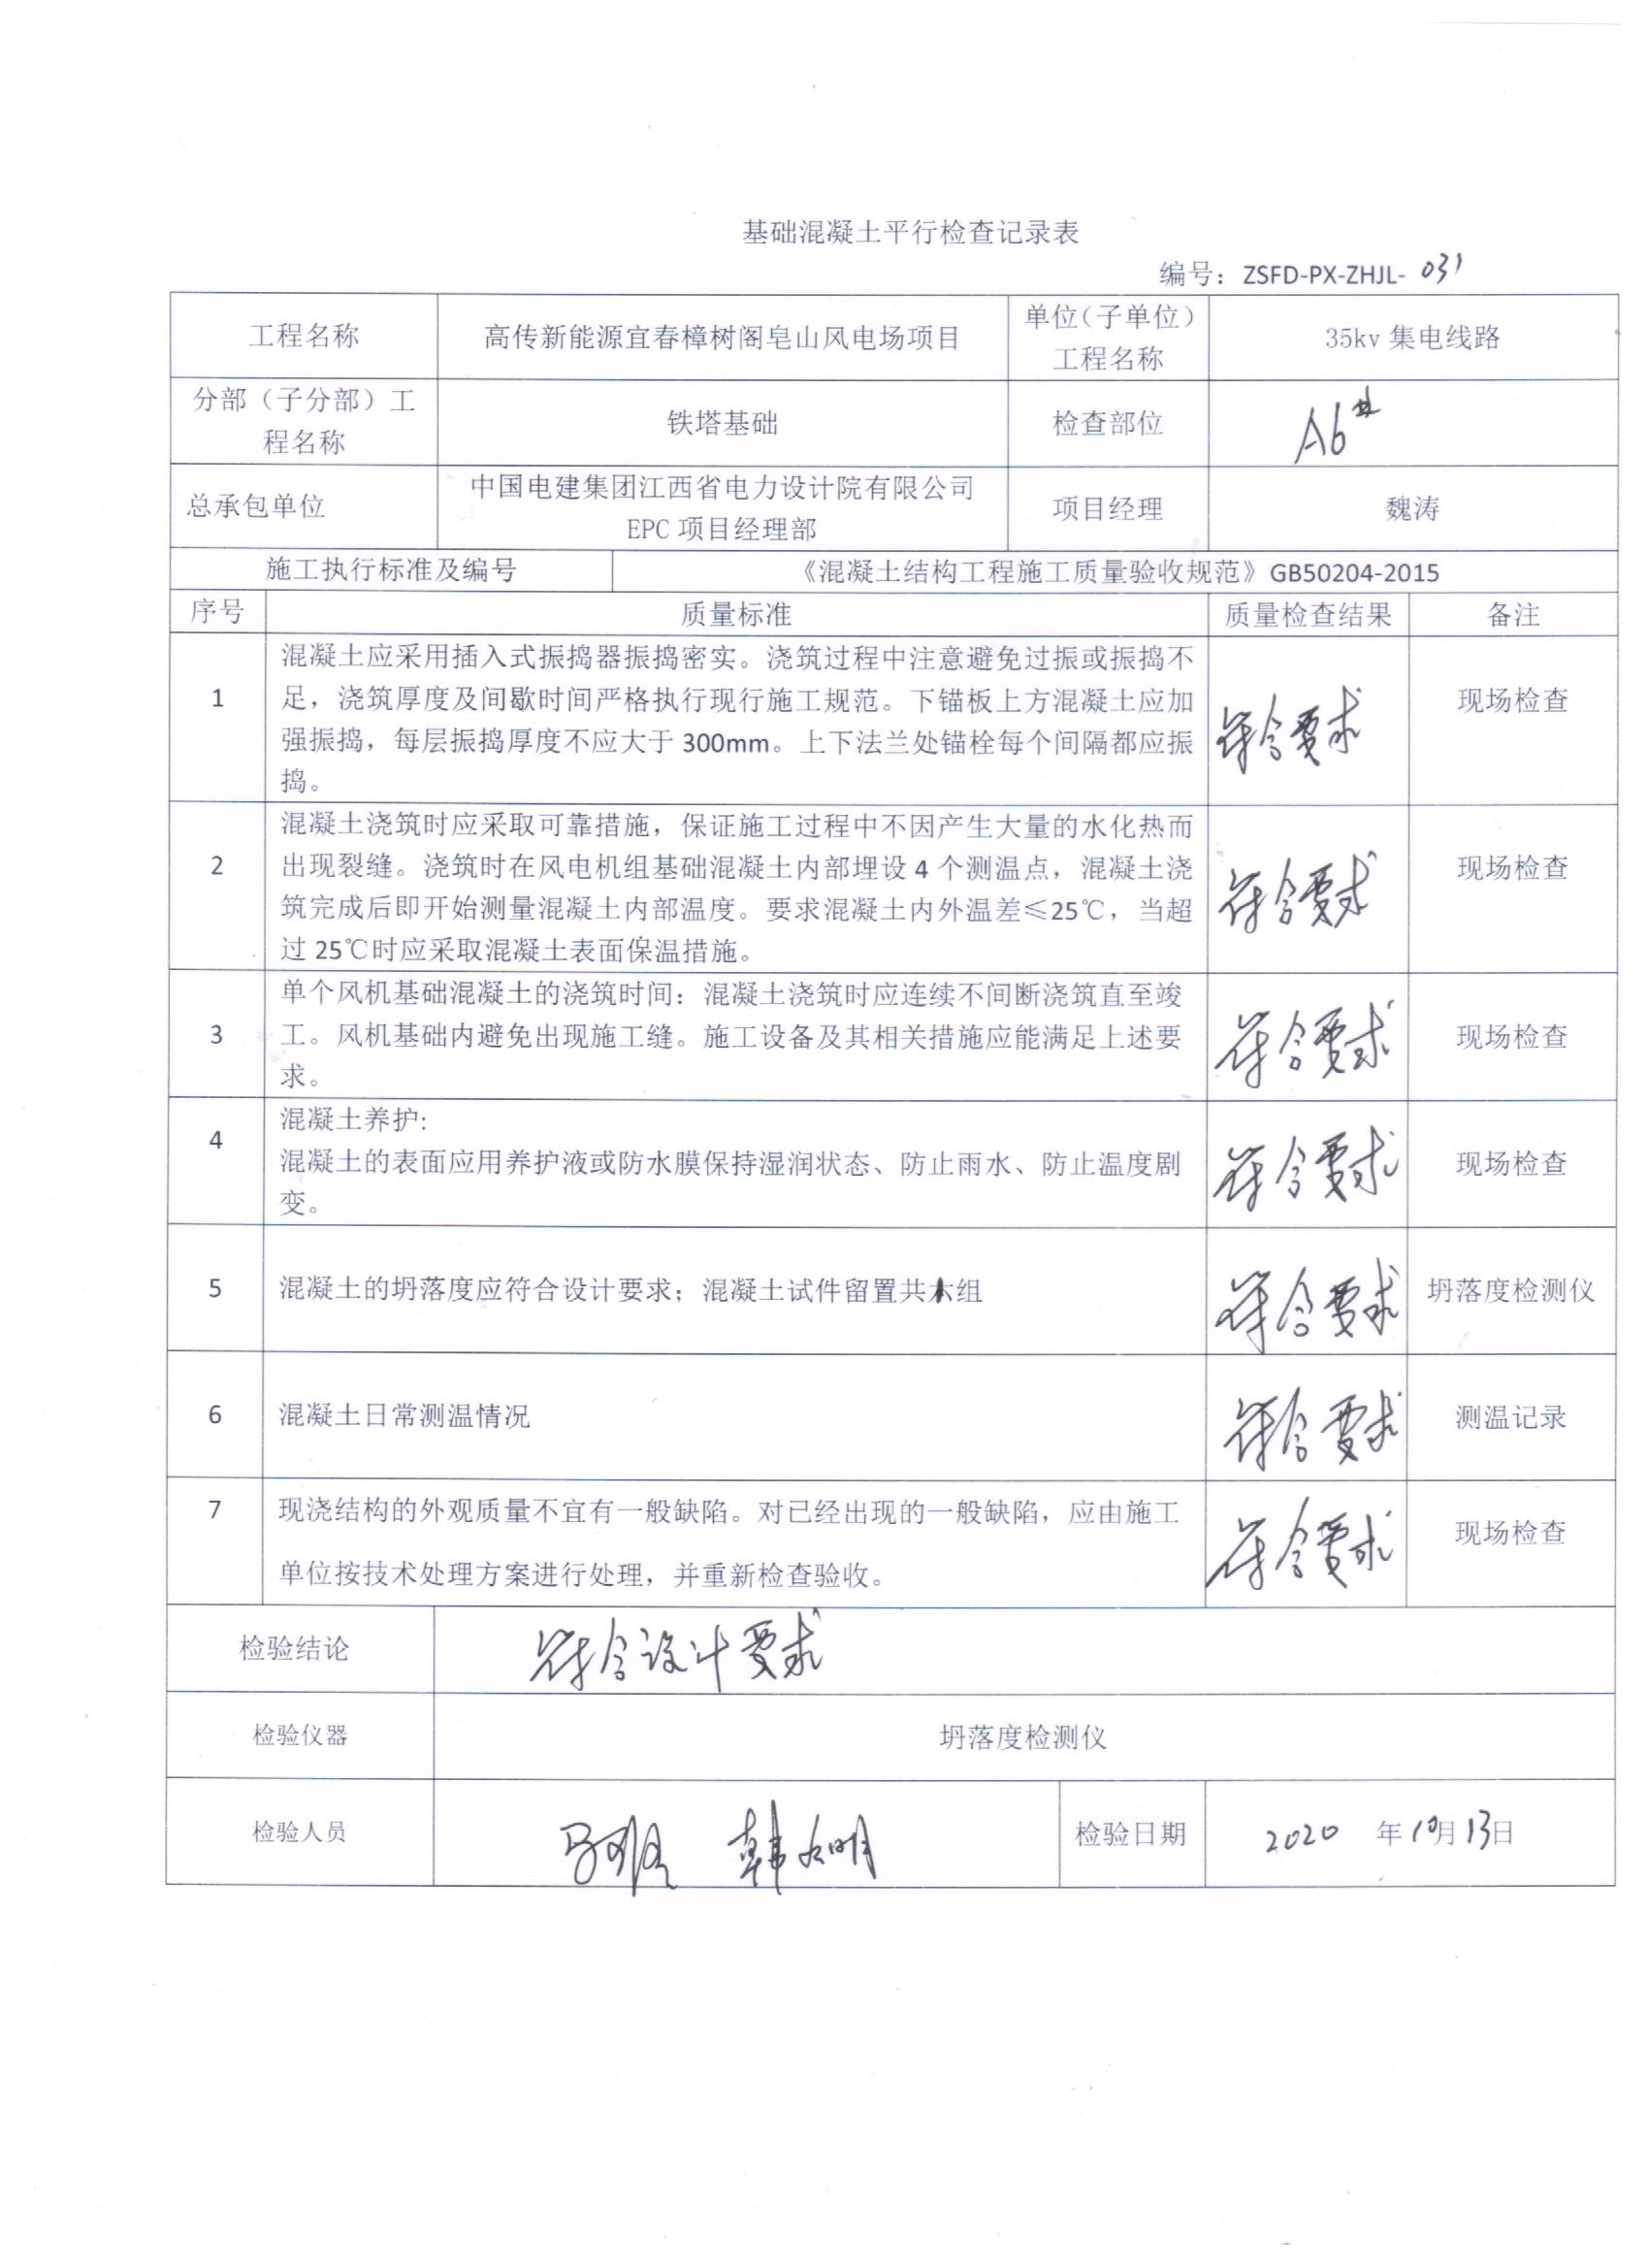 基础混凝土平行检查记录表
编号：ZSFD-PX-ZHJL- 031
工程名称
高传新能源宜春樟树阁皂山风电场项目
单位（子单位）
工程名称
35kv 集电线路
分部（子分部）工
程名称
铁塔基础
检查部位
A6#
总承包单位
中国电建集团江西省电力设计院有限公司
EPC 项目经理部
项目经理
魏涛
施工执行标准及编号
《混凝土结构工程施工质量验收规范》GB50204-2015
序号
质量标准
质量检查结果
备注
1
混凝土应采用插入式振捣器振捣密实。浇筑过程中注意避免过振或振捣不
足，浇筑厚度及间歇时间严格执行现行施工规范。下锚板上方混凝土应加
强振捣，每层振捣厚度不应大于 300mm。上下法兰处锚栓每个间隔都应振
捣。
符合要求
现场检查
2
混凝土浇筑时应采取可靠措施，保证施工过程中不因产生大量的水化热而
出现裂缝。浇筑时在风电机组基础混凝土内部埋设 4 个测温点，混凝土浇
筑完成后即开始测量混凝土内部温度。要求混凝土内外温差≤25℃，当超
过 25℃时应采取混凝土表面保温措施。
符合要求
现场检查
3
单个风机基础混凝土的浇筑时间：混凝土浇筑时应连续不间断浇筑直至竣
工。风机基础内避免出现施工缝。施工设备及其相关措施应能满足上述要
求。
符合要求
现场检查
4
混凝土养护:
混凝土的表面应用养护液或防水膜保持湿润状态、防止雨水、防止温度剧
变。
符合要求
现场检查
5
混凝土的坍落度应符合设计要求；混凝土试件留置共 组
符合要求
坍落度检测仪
6
混凝土日常测温情况
符合要求
测温记录
7
现浇结构的外观质量不宜有一般缺陷。对已经出现的一般缺陷，应由施工
单位按技术处理方案进行处理，并重新检查验收。
符合要求
现场检查
检验结论
符合设计要求
检验仪器
坍落度检测仪
检验人员
检验日期
2020 年 10月 13日